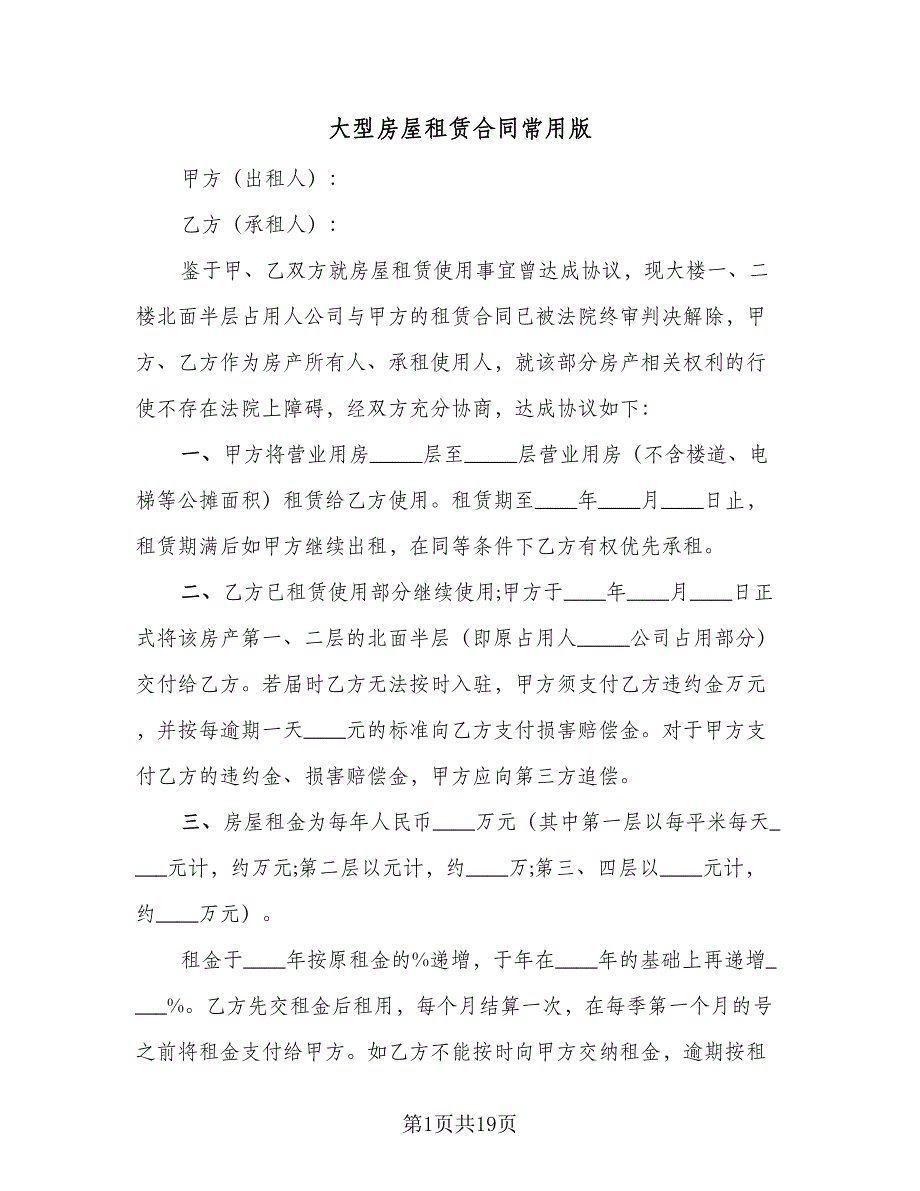 大型房屋租赁合同常用版
甲方（出租人）：
乙方（承租人）：
鉴于甲、乙双方就房屋租赁使用事宜曾达成协议，现大楼一、二
楼北面半层占用人公司与甲方的租赁合同已被法院终审判决解除，甲
方、乙方作为房产所有人、承租使用人，就该部分房产相关权利的行
使不存在法院上障碍，经双方充分协商，达成协议如下：
一、甲方将营业用房_____层至_____层营业用房（不含楼道、电
梯等公摊面积）租赁给乙方使用。租赁期至____年____月____日止，
租赁期满后如甲方继续出租，在同等条件下乙方有权优先承租。
二、乙方已租赁使用部分继续使用;甲方于____年____月____日正
式将该房产第一、二层的北面半层（即原占用人_____公司占用部分）
交付给乙方。若届时乙方无法按时入驻，甲方须支付乙方违约金万元
，并按每逾期一天____元的标准向乙方支付损害赔偿金。对于甲方支
付乙方的违约金、损害赔偿金，甲方应向第三方追偿。
三、房屋租金为每年人民币____万元（其中第一层以每平米每天_
___元计，约万元;第二层以元计，约____万;第三、四层以____元计，
约____万元）。
租金于____年按原租金的%递增，于年在____年的基础上再递增_
___%。乙方先交租金后租用，每个月结算一次，在每季第一个月的号
之前将租金支付给甲方。如乙方不能按时向甲方交纳租金，逾期按租
第1页共19页